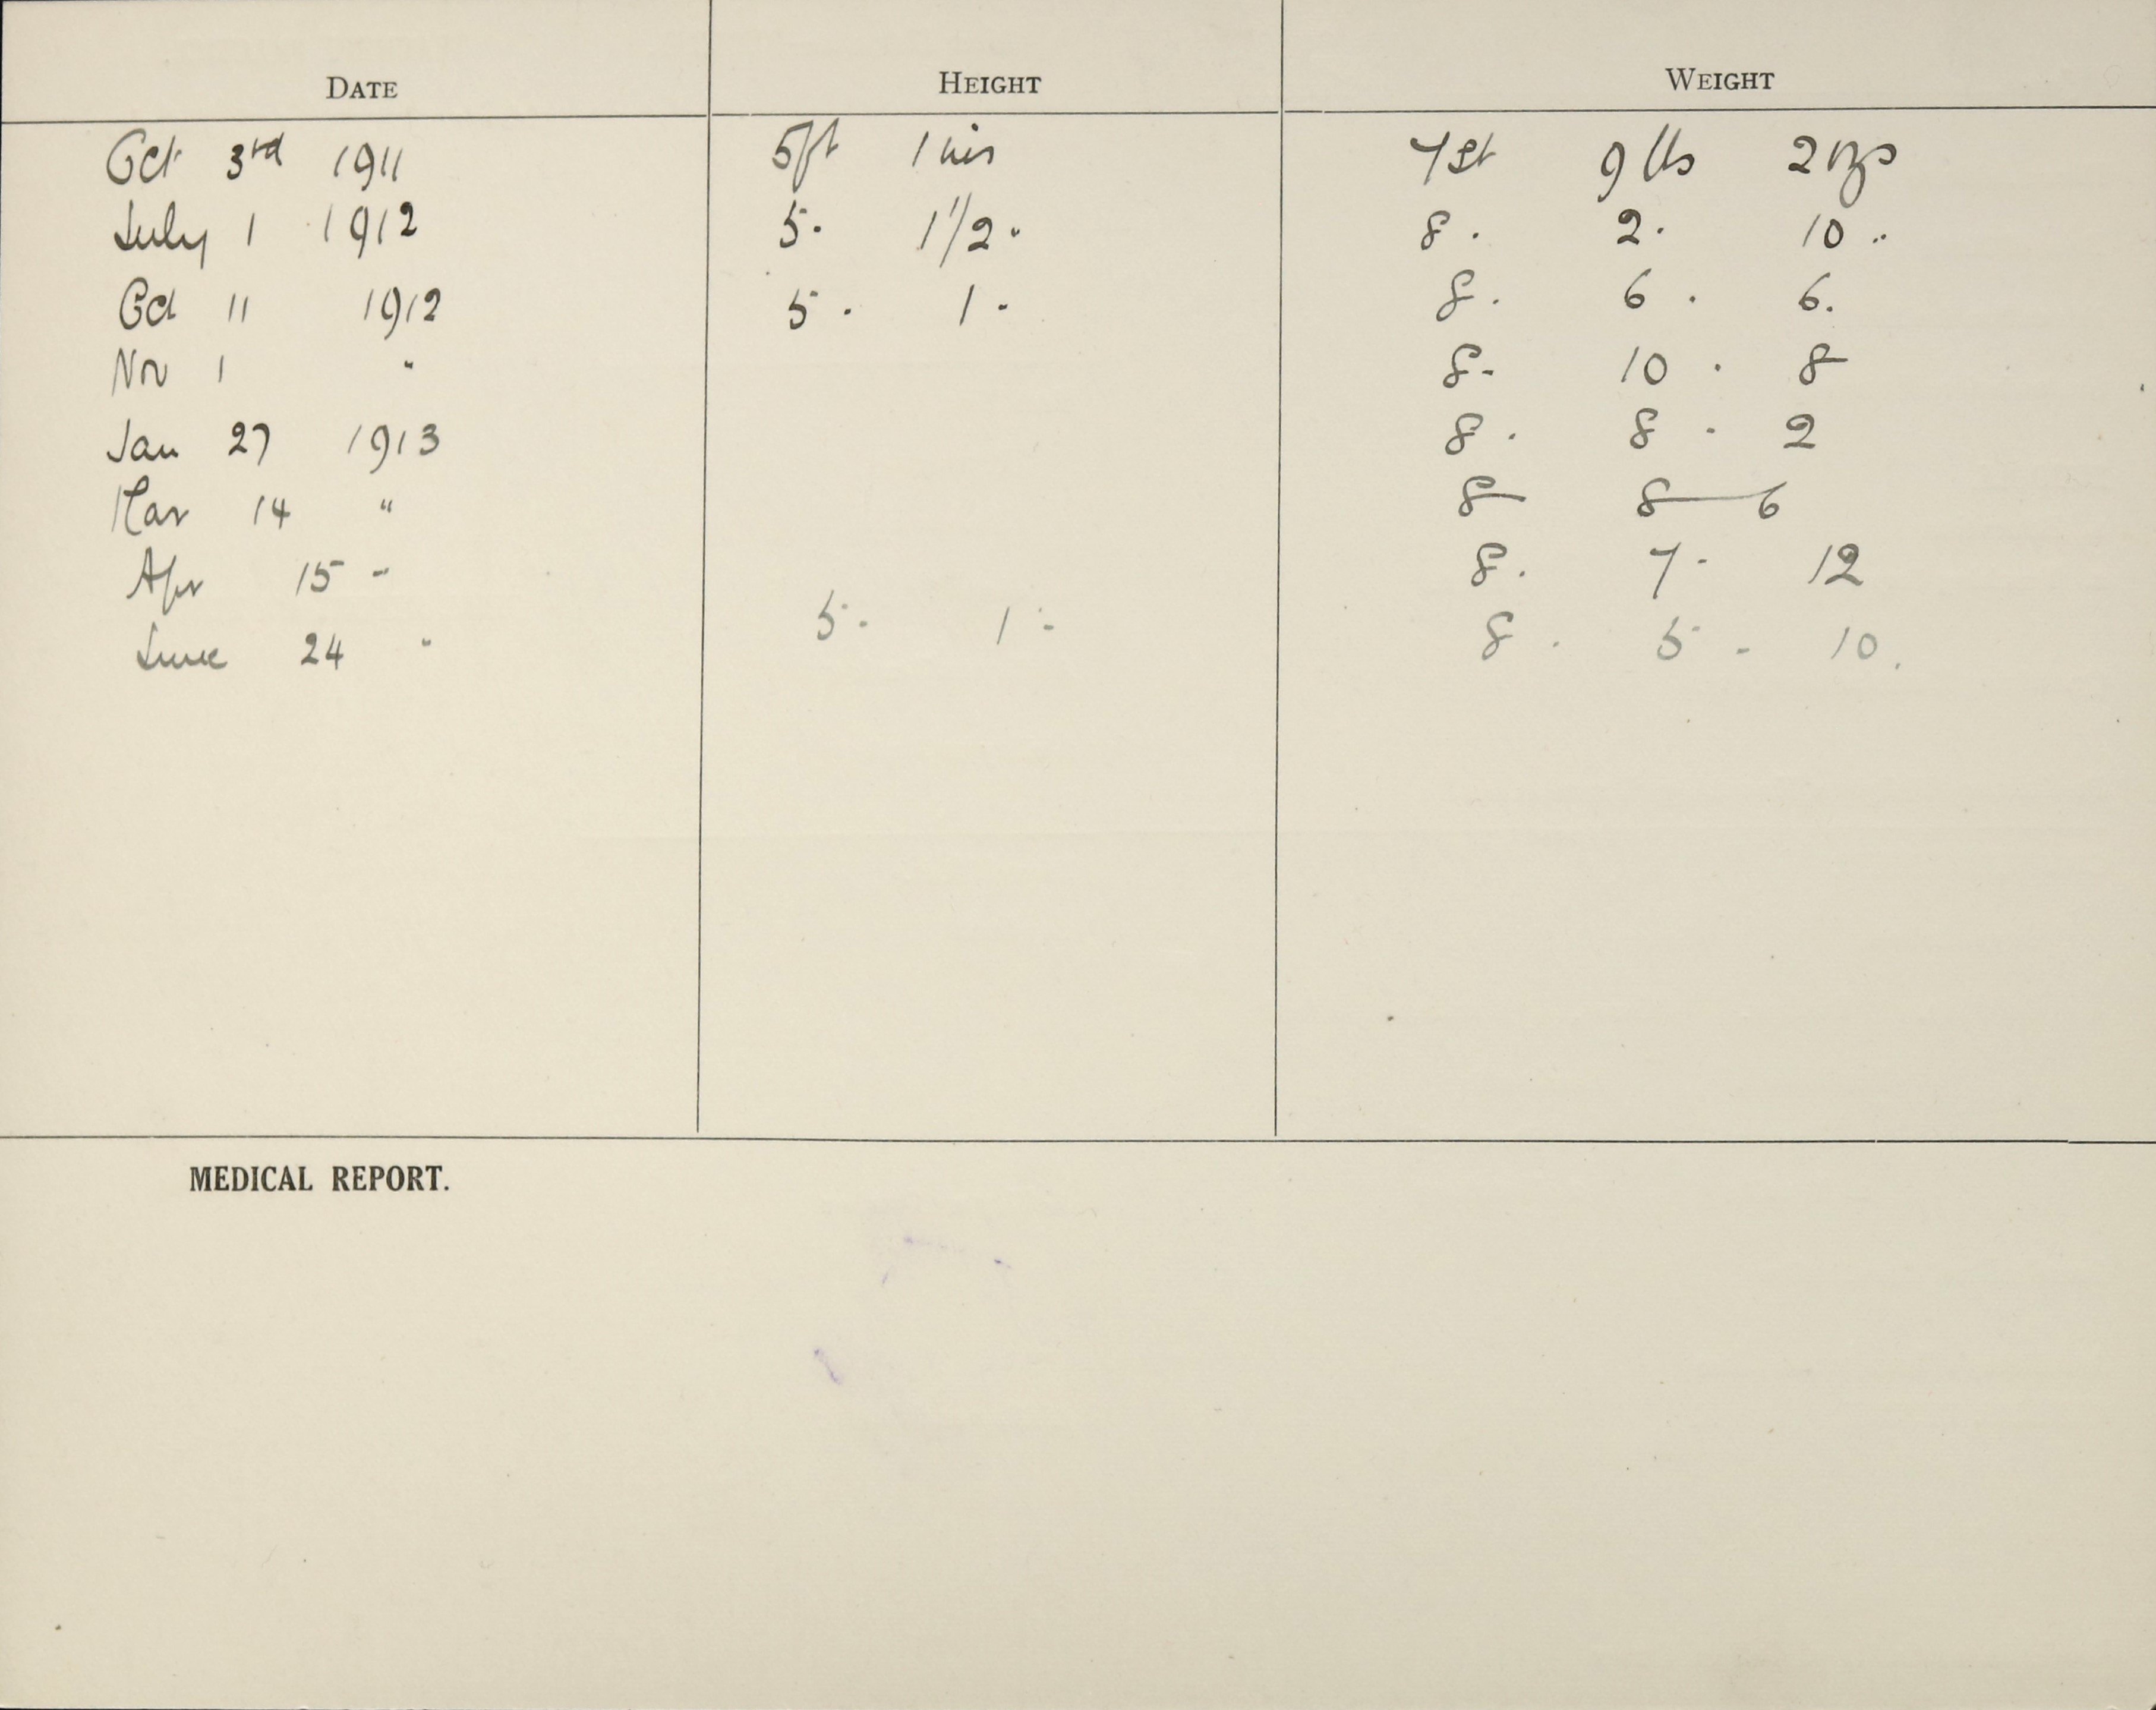 DATE HEIGHT WEIGHT
Oct 3rd 1911 5ft 1 ins 7st 9 lbs 2 ozs
July 1 1912 5. 1 1/2 " 8. 2. 10 ..
Oct 11 1912 5. 1 - 8. 6. 6.
Nov 1 " 8- 10 . 8
Jan 27 1913 8. 8 - 2
Mar 14 " 8 8 — 6
Apr 15 - 8. 7- 12
June 24 " 5. 1 - 8 . 5 - 10.
MEDICAL REPORT.